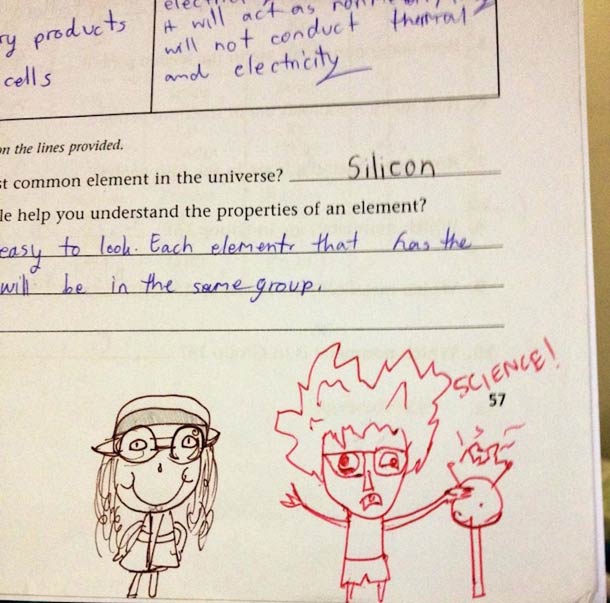 ry products
cells
it will act as
will not conduct thermal
and electricity
on the lines provided.
st common element in the universe? Silicon
le help you understand the properties of an element?
easy to look. Each elements that has the
will be in the same group.
SCIENCE!
57